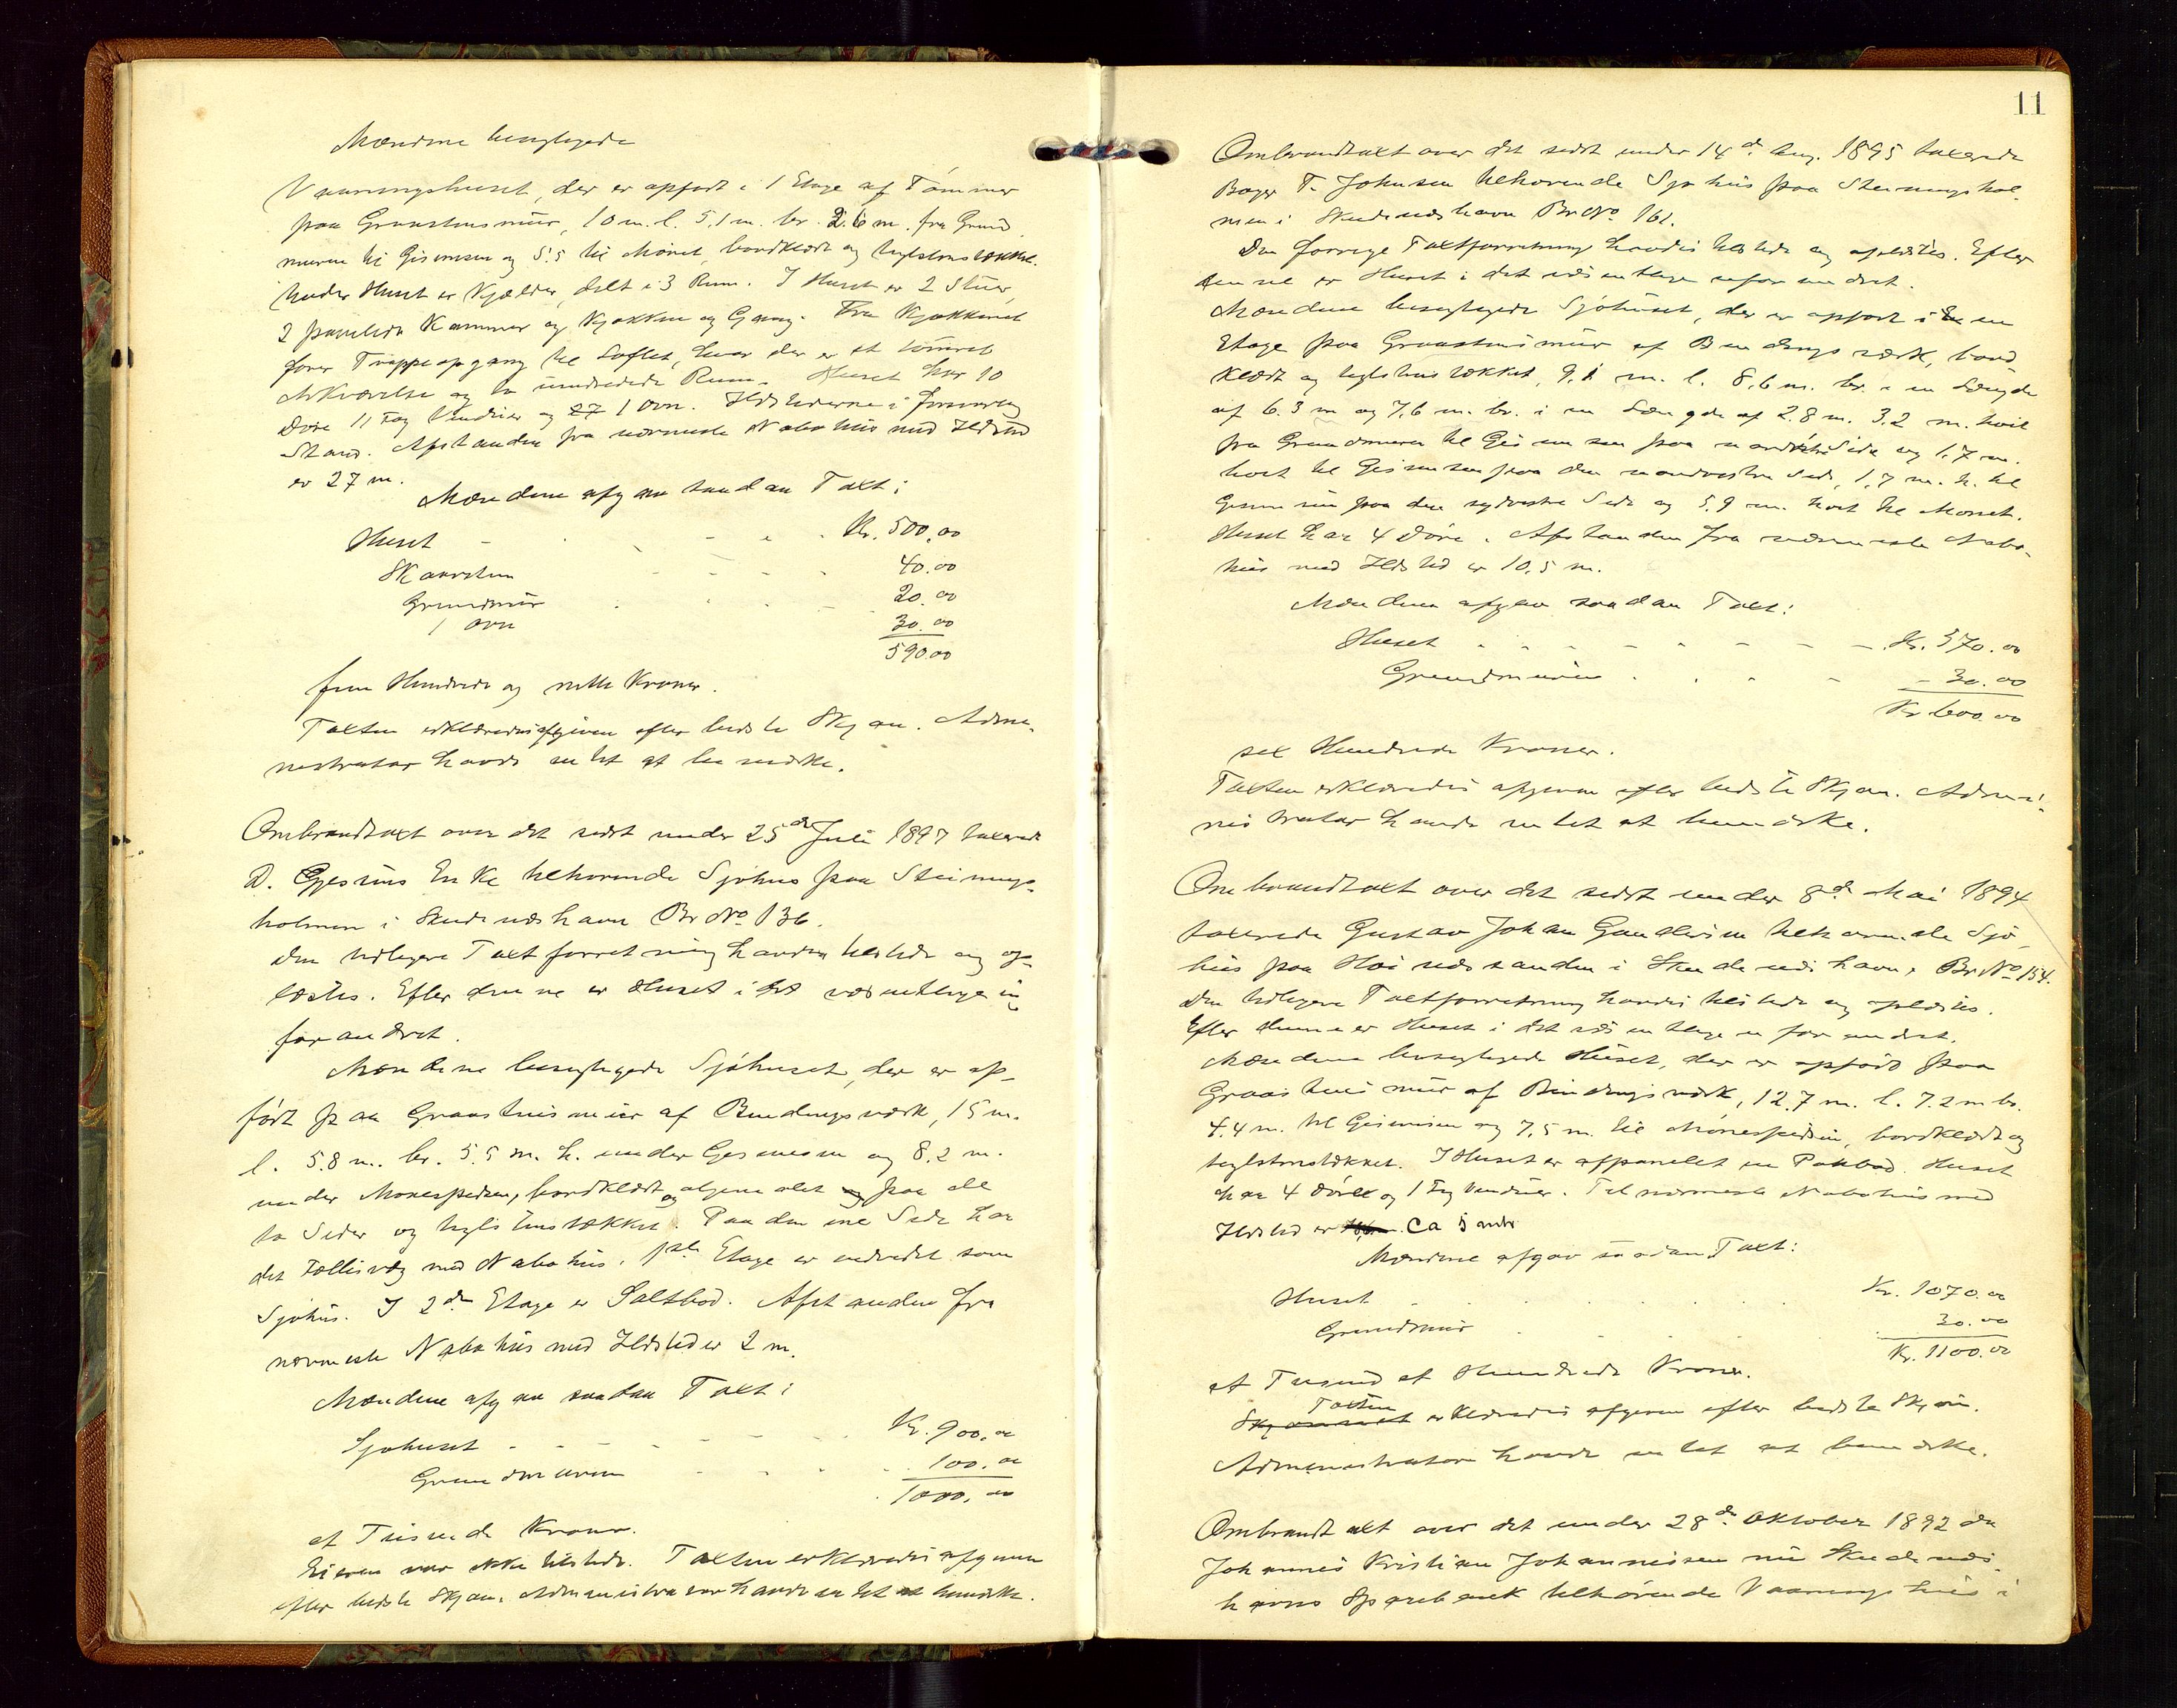 Mændene besigtigede
Vaaningshuset, der er opført i 1 Etage af Tømmer
paa Graastensmur, 10 m. l. 5,1 m. br. 2.6 m. fra Grund
muren til Gesimsen og 5.5 til Mønet, bordklædt og teglstenstækket.
Under Huset er Kjælder, delt i 3 Rum. I Huset er 2 Stuer,
2 panelede Kammer og Kjøkken og Gang. Fra Kjøkkenet
fører Trappeopgang til Loftet, hvor der er et tømret
Arkværelse og to indredede Rum. Huset har 10
Døre 11 Fag Vinduer og 1 Ovn. Ildstederne i forsvarlig
Stand. Afstanden fra nærmeste Nabohus med Ildsted
er 27 m.
Mændene afgav saadan Taxt:
Huset Kr. 500,00
Skorsten 40.00
Grundmur 20.00
1 Ovn 30.00
590.00
fem Hundrede og nitti Kroner.
Taxten erklæredes afgiven efter bedste Skjøn. Admi-
nistrator havde intet at bemærke.
Ombrandtaxt over det sidst under 25de Juli 1897 taxerede
D. Gjesius Enke tilhørende Sjøhus paa Steinings-
holmen i Skudeneshavn Br No 136.
Den tidligere Taxtforretning havdes tilstede og op-
læstes. Efter denne er Huset i det væsentlige u-
forandret.
Mændene besigtigede Sjøhuset, der er op-
ført paa Graastensmur af Bindingsværk, 15 m.
l. 5.8 m. br. 5.5 m. h. under Gesimsen og 8.2 m.
under Mønespidsen, bordklædt og oljemalet paa alle
to Sider og teglstenstækket. Paa den ene Side har
det Fællesvæg med Nabohus. 1ste Etage er indredet som
Sjøhus. I 2den Etage er Saltbod. Afstanden fra
nærmeste Nabohus med Ildsted er 2 m.
Mændene afgav saadan Taxt:
Sjøhuset Kr. 900.00
Grundmuren 100.00
1000.00
et Tusinde Kroner.
Eieren var ikke tilstede. Taxten erklæredes afgiven
efter bedste Skjøn. Administrator havde intet at bemærke.
11
Ombrandtaxt over det sidst under 14de Aug. 1895 taxerede
Bager T. Johnsen tilhørende Sjøhus paa Steiningshol-
men i Skudeneshavn Br No 161.
Den forrige Taxtforretning havdes tilstede og oplæstes. Efter
denne er Huset i det væsentlige uforandret.
Mændene besigtigede Sjøhuset, der er opført i en
Etage paa Graastensmur af Bindingsværk, bord-
klædt og teglstenstækket, 9,1 m. l. 8,6 m. br. i en Længde
af 6.3 m og 7,6 m. br. i en Længde af 2.8 m. 3,2 m. høit
fra Grundmuren til Gesimsen paa Side og 1.7 m.
høit til Gesimsen paa den nordvestre Side, 1,7 m. h. til
Gesimsen paa den sydvestre Side og 5.9 m. høit til Mønet.
Huset har 4 Døre. Afstanden fra nærmeste Nabo-
hus med Ildsted er 10,5 m.
Mændene afgav saadan Taxt:
Huset Kr. 570.00
Grundmuren 30.00
Kr 600.00
sex Hundrede Kroner.
Taxten erklæredes afgiven efter bedste Skjøn. Admi-
nistrator havde intet at bemærke.
Ombrandtaxt over det sidst under 8de Mai 1894
taxerede Gustav Johan Gundersen tilhørende Sjø-
hus paa Høinessanden i Skudeneshavn, Br No 154.
Den tidligere Taxtforretning havdes tilstede og oplæstes.
Efter denne er Huset i det væsentlige uforandret.
Mændene besigtigede Huset, der er opført paa
Graastensmur af Bindingsværk, 12.7 m. l. 7.2 m br.
4.4 m. til Gesimsen og 7,5 m. til Mønespidsen, bordklædt og
teglstenstækket. I Huset er afpanelet en Pakbod. Huset
har 4 Døre og 1 Fag Vinduer. Til nærmeste Nabohus med
Ildsted er ca 5 mtr
Mændene afgav saadan Taxt:
Huset Kr. 1070.00
Grundmur 30.00
Kr. 1100.00
et Tusind et Hundrede Kroner.
Taxten
Skjønnet erklæredes afgiven efter bedste Skjøn.
Administrator havde intet at bemærke.
Ombrandtaxt over det under 28de Oktober 1892 da
Johannes Kristian Johannesen nu Skudenes-
havns Sparebank tilhørende Vaaningshus i